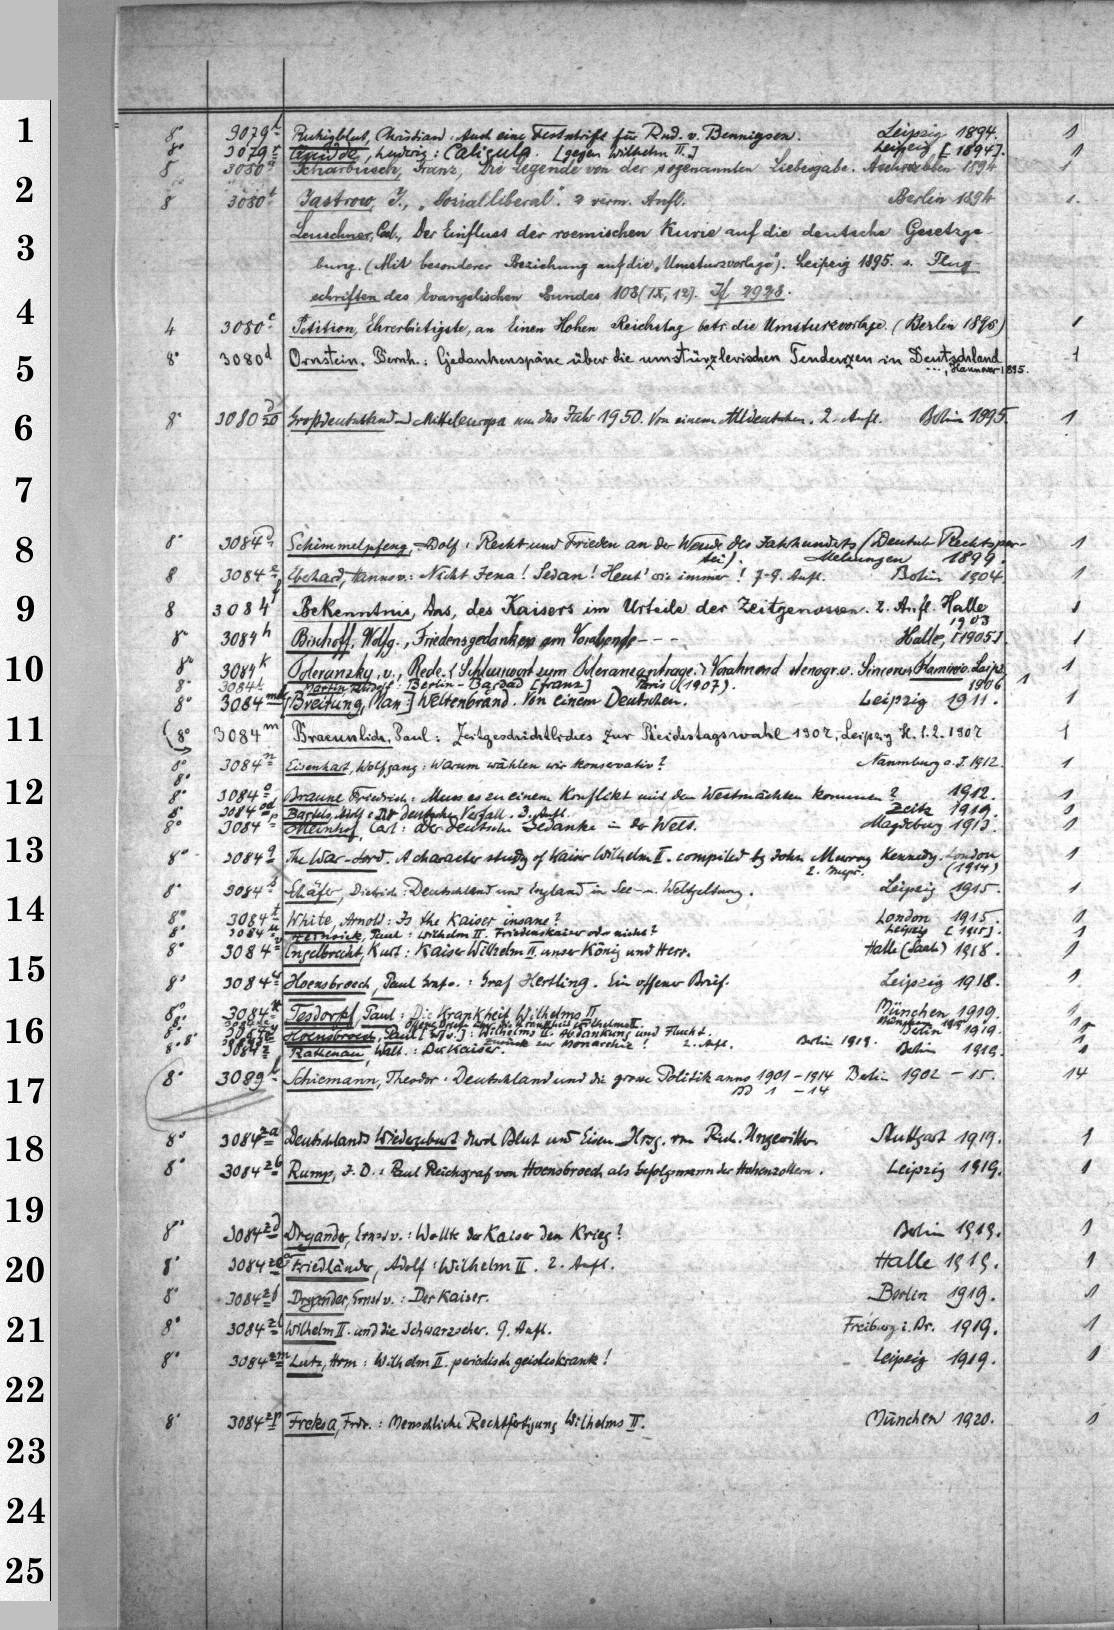 1
8° 3079 l Ruhigblut, Christian: Auch eine Festschrift für Rud. v. Bennigsen. Leipzig 1894. 1
8° 3079 r Quidde, Ludwig: Caligula. [gegen Wilhelm II.] Leipzig [1894]. 1
8 3080 a Scharbusch, Franz, Die Legende von der sogenannten Liebesgabe. Aschersleben 1894 1
2
8 3080 b Jastrow, J., „Sozialliberal". 2 verm. Aufl. Berlin 1894 1.
3
Leuschner, Carl, Der Einfluss der roemischen Kurie auf die deutsche Gesetzge-
bung. (Mit besonderer Beziehung auf die „Umsturzvorlage"). Leipzig 1895. s. Flug-
schriften des Evangelischen Bundes 108 (IX, 12). If 2928.
4
4 3080 c Petition, Ehrerbietigste, an Einen Hohen Reichstag betr. die Umsturzvorlage. (Berlin 1895) 1
5
8° 3080 d Ornstein, Bernh.: Gedankenspäne über die umstürzlerischen Tendenzen in Deutschland 1
..., Hannover 1895.
6
8° 3080 Großdeutschland und Mitteleuropa um das Jahr 1950. Von einem Alldeutschen. 2. Aufl. Berlin 1895. 1
7
8
8° 3084 Schimmelpfeng, Dolf: Recht und Frieden an der Wende des Jahrhunderts (Deutsche Rechtspar- 1
tei). Melsungen 1899.
8 3084 e Eberhard, Hanno v.: Nicht Jena! Sedan! Heut' wie immer! 7-9. Aufl. Berlin 1904. 1
9
8 3084 f Bekenntnis, Das, des Kaisers im Urteile der Zeitgenossen. 2. Aufl. Halle 1
1903
8° 3084 h Bischoff, Wolfg., Friedensgedanken am Vorabende - - - Halle, [1905] 1
10
8° 3084 k v., Rede. Leipz. 1
1906
8° 3084 l Martin, Rudolf: Berlin - Bagdad [franz] Paris (1907). 1
8° 3084 [Breitung, Max] Weltenbrand. Von einem Deutschen. Leipzig 1911. 1
11
(8° 3084 m Braeunlich, Paul: Zeitgeschichtliches zur Reichstagswahl 1907, Leipzig H. 1. 2. 1907 1
8° 3084 n Eisenhart, Wolfgang: Warum wählen wir konservativ? Naumburg a. S. 1912. 1
8°
12
8° 3084 o Braune Friedrich: Muss es zu einem Konflikt mit den Westmächten kommen? 1912. 1
8° 3084 od Bartels, Adolf: Der deutsche Verfall. 3. Aufl. Zeitz 1919. 1
8° 3084 p Meinhof, Carl: Der deutsche Gedanke in der Welt. Magdeburg 1913. 1
13
8° 3084 q The War-Lord. A character study of Kaiser Wilhelm II. compiled by John Murray Kennedy. London 1
2. Impr. (1914)
8° 3084 s Schäfer, Dietrich: Deutschland und England in See- u. Weltgeltung. Leipzig 1915. 1
14
8° 3084 t White, Arnold: Is the Kaiser insane? London 1915. 1
8° 3084 u Paul: Wilhelm II. Friedenskaiser oder nicht? Leipzig [1915]. 1
8° 3084 v Engelbrecht, Kurt: Kaiser Wilhelm II. unser König und Herr. Halle (Saale) 1918. 1
15
8° 3084 w Hoensbroech, Paul Graf v.: Graf Hertling. Ein offener Brief. Leipzig 1918. 1
8° 3084 x Tesdorpf, Paul: Die Krankheit Wilhelms II. München 1919. 1
16
Offener Brief München 1919
8° 3084 y Hoensbroech, Paul [Gf. v.]: Wilhelms II. Abdankung und Flucht. Berlin 1919. 1
Zurück zur Monarchie! 2. Aufl. Berlin 1919. 1
8° 8° 3084 z Rathenau, Walt.: Der Kaiser. Berlin 1919. 1
17
8° 3089 b Schiemann, Theodor: Deutschland und die grosse Politik anno 1901 - 1914 Berlin 1902 - 15. 14
Bd 1 - 14
18
8° 3084 za Deutschlands Wiedergeburt durch Blut und Eisen. Hrsg. von Rich. Ungewitter Stuttgart 1919. 1
8° 3084 zb Rump, J. D.: Paul Reichsgraf von Hoensbroech als Gefolgsmann der Hohenzollern. Leipzig 1919. 1
19
8° 3084 zd Dryander, Ernst v.: Wollte der Kaiser den Krieg? Berlin 1919. 1
20
8° 3084 ze Friedländer, Adolf: Wilhelm II. 2. Aufl. Halle 1919. 1
8° 3084 zf Dryander, Ernst v.: Der Kaiser. Berlin 1919. 1
21
8° 3084 zl Wilhelm II. und die Schwarzseher. 9. Aufl. Freiburg i. Br. 1919. 1
8° 3084 zm Lutz, Hrm: Wilhelm II. periodisch geisteskrank! Leipzig 1919. 1
22
8° 3084 zp Freksa, Frdr.: Menschliche Rechtfertigung Wilhelms II. München 1920. 1
23
24
25